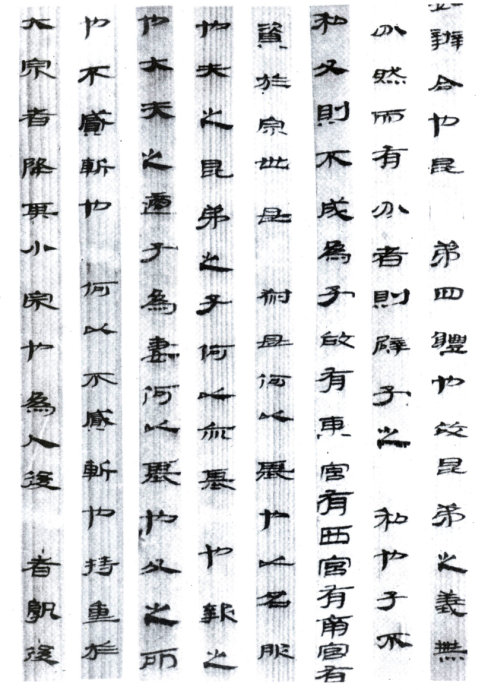 辨合也昆弟四體也故昆弟之義無
分然而有分者則辟子之私也子不
私父則不成為子故有東宮有西宮有南宮有
資於宗世母叔母何以朞也以名服
也夫之昆弟之子何以亦朞也報之
也大夫之適子為妻何以朞也父之所
也不貳斬也何以不貳斬也持重於
大宗者降其小宗也為人後者孰後